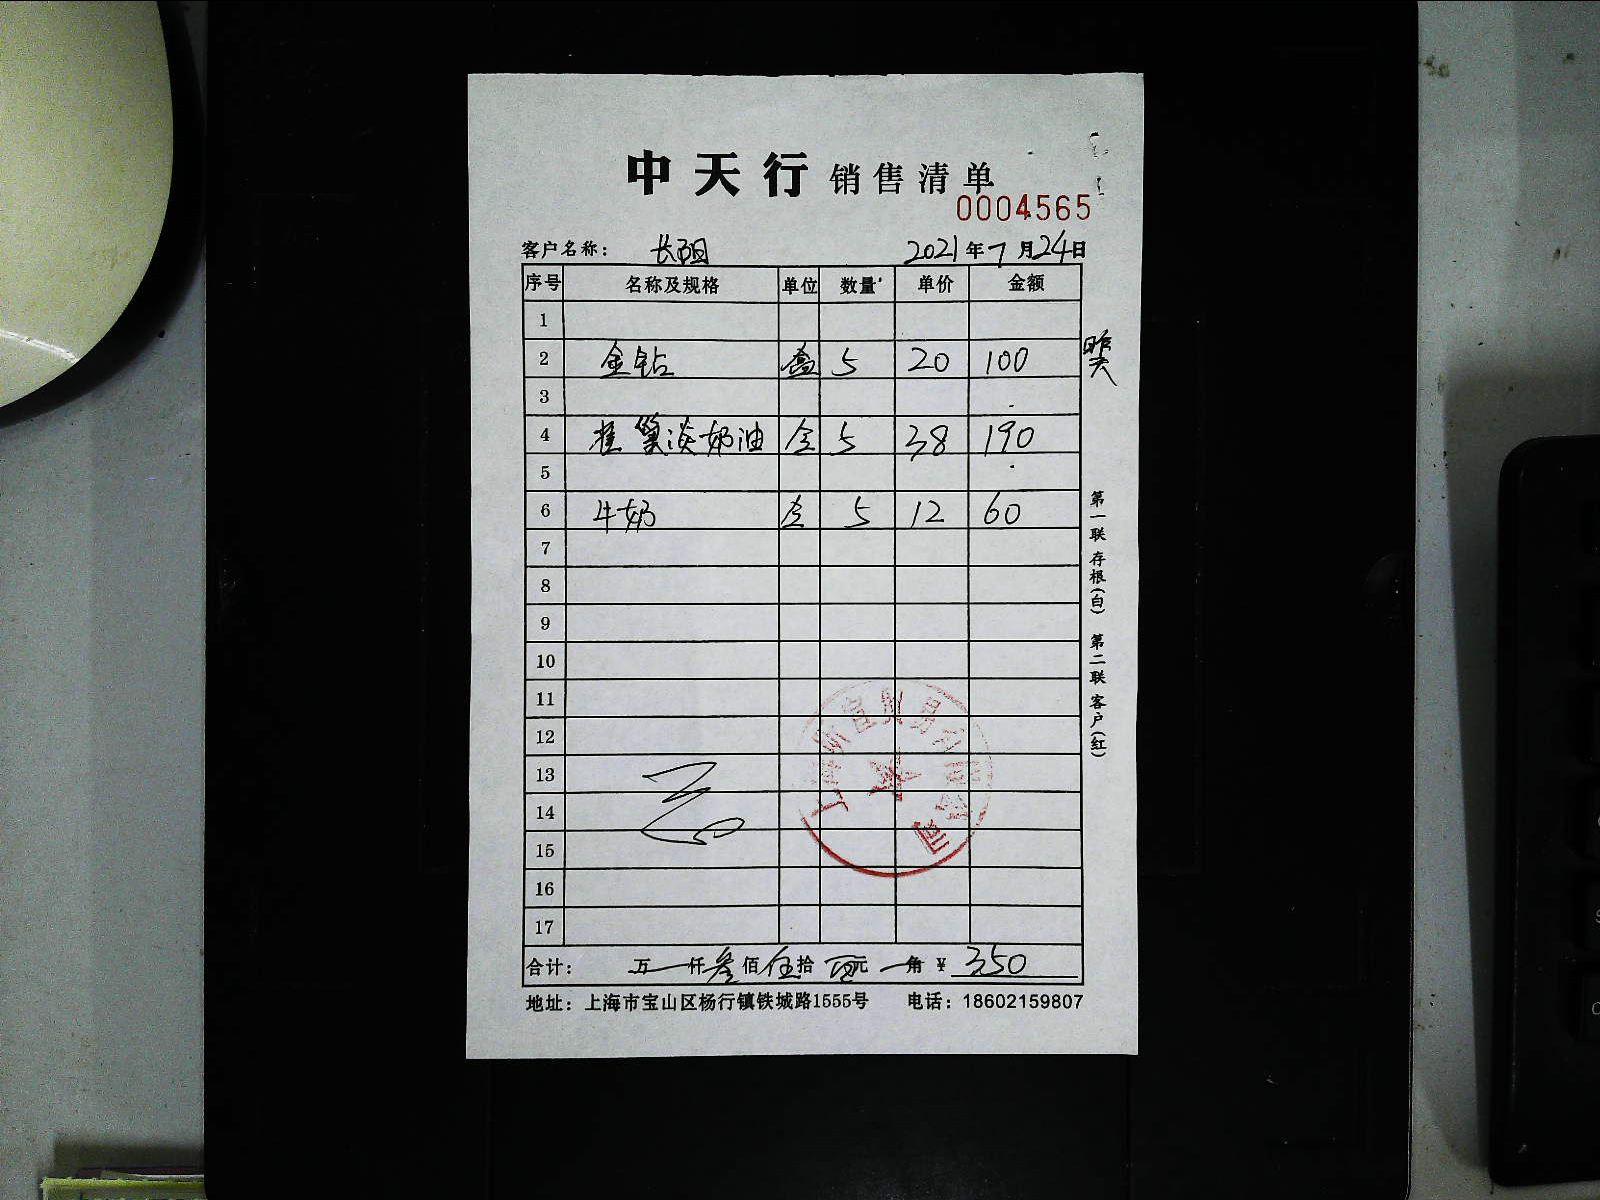 中天行 销售清单
0004565
客户名称： 长阳 2021年7月24日
序号 名称及规格 单位 数量 单价 金额
1
2 金钻 盒 5 20 100
昨天
3
4 淡奶油 仝 5 38 190
5
6 牛奶 仝 5 12 60
7
8
9
10
11
12
13
14
15
16
17
合计： 万 仟 叁 佰 伍 拾 元 角 ¥ 350
地址：上海市宝山区杨行镇铁城路1555号 电话：18602159807
第一联 存根（白） 第二联 客户（红）